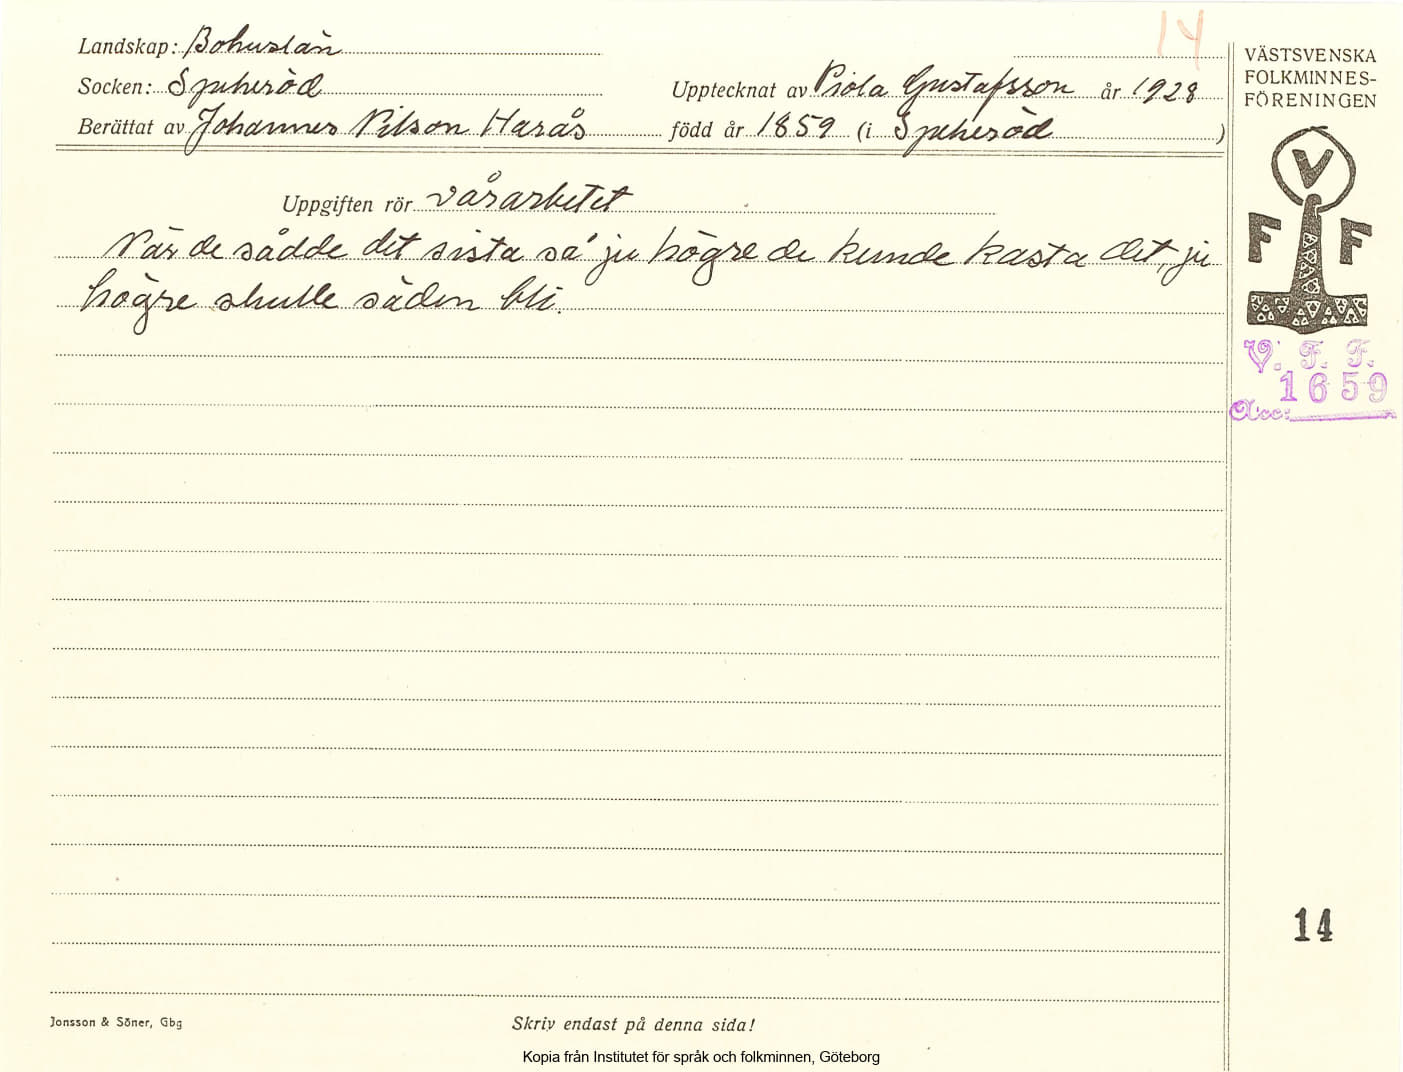 14
Landskap: Bohuslän
Socken: Spekeröd
Upptecknat av Viola Gustafsson år 1928
Berättat av Johannes Nilson Harås född år 1859 (i Spekeröd)
Uppgiften rör vårarbetet
När de sådde det sista så ju högre de kunde kasta det, ju
högre skulle säden bli.
VÄSTSVENSKA
FOLKMINNES-
FÖRENINGEN
V
F F
V. F. F.
1659
Acc:
14
Jonsson & Söner, Gbg
Skriv endast på denna sida!
Kopia från Institutet för språk och folkminnen, Göteborg